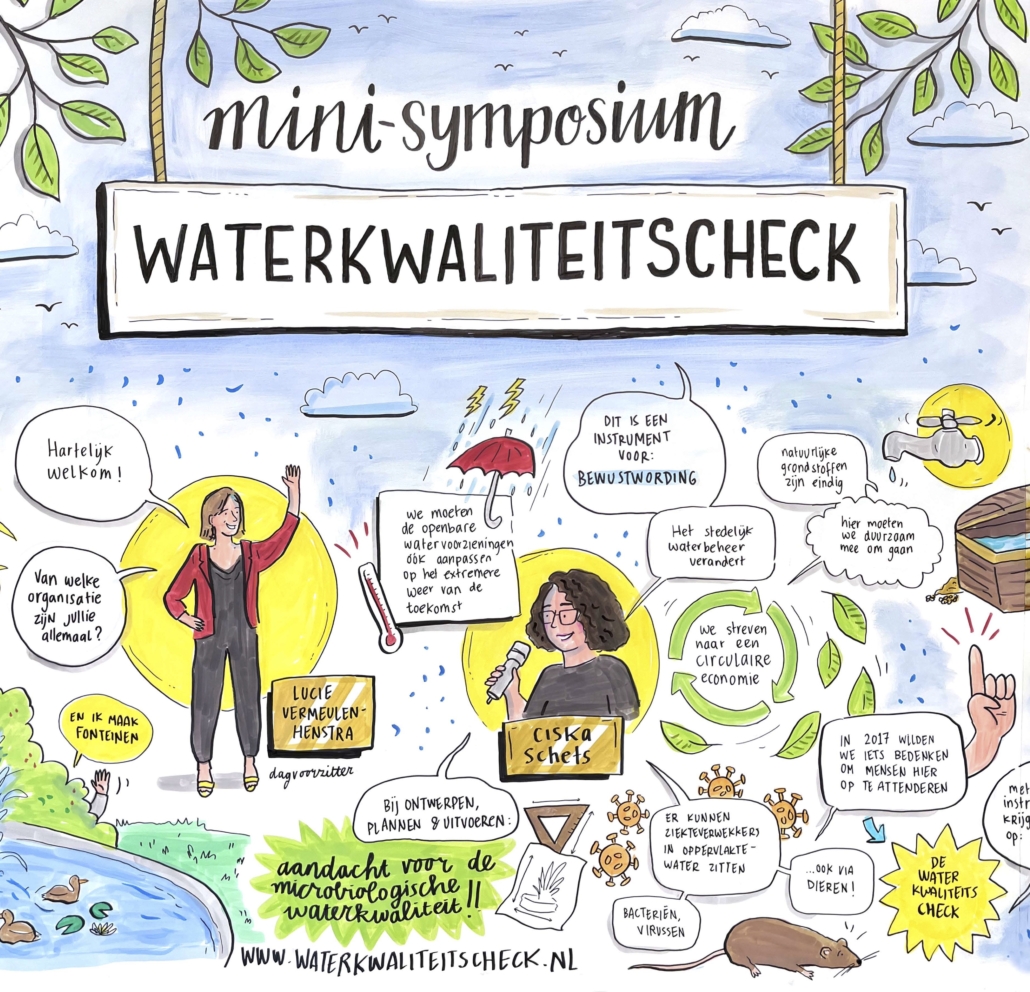 mini-symposium
WATERKWALITEITSCHECK
Hartelijk
welkom!
Van welke
organisatie
zijn jullie
allemaal?
EN IK MAAK
FONTEINEN
LUCIE
VERMEULEN-
HENSTRA
dagvoorzitter
we moeten
de openbare
watervoorzieningen
óók aanpassen
op het extremere
weer van de
toekomst
DIT IS EEN
INSTRUMENT
VOOR:
BEWUSTWORDING
Het stedelijk
waterbeheer
verandert
natuurlijke
grondstoffen
zijn eindig
hier moeten
we duurzaam
mee om gaan
we streven
naar een
CIRCULAIRE
economie
CISKA
Schets
BIJ ONTWERPEN,
PLANNEN & UITVOEREN:
aandacht voor de
microbiologische
waterkwaliteit!!
WWW.WATERKWALITEITSCHECK.NL
ER KUNNEN
ZIEKTEVERWEKKERS
IN OPPERVLAKTE-
WATER ZITTEN
...OOK VIA
DIEREN!
BACTERIËN,
VIRUSSEN
IN 2017 WILDEN
WE IETS BEDENKEN
OM MENSEN HIER
OP TE ATTENDEREN
DE
WATER
KWALITEITS
CHECK
met
instr
krijg
op: